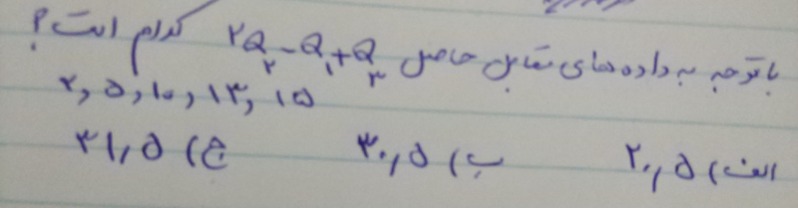 با توجه به داده‌های مقابل حاصل ۲Q₂ - Q₁ + Q₃ کدام است؟
۲, ۵, ۱۰, ۱۳, ۱۵
الف) ۲۰,۵ ب) ۳۰,۵ ج) ۳۱,۵